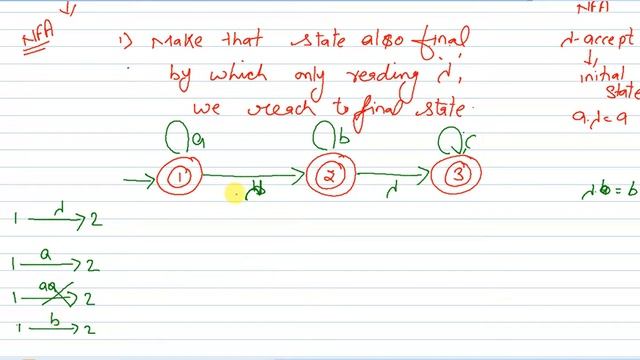 NFA
1) Make that state also final
by which only reading 'λ',
we reach to final state.
NFA
λ-accept
↓
initial
state
a.λ = a
λ.b = b
a b c
→ 1 → 2 → 3
λ
1 λ→ 2
1 a→ 2
1 aa→ 2
1 b→ 2